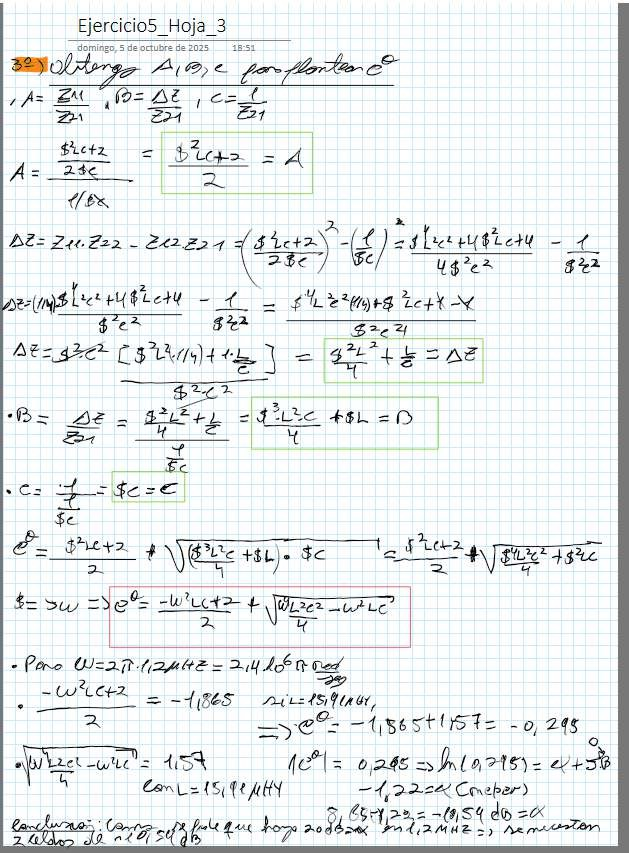 Ejercicio5_Hoja_3
domingo, 5 de octubre de 2025 18:51
3º) Obtengo A, B, C para plantear e^θ
, A = Z11/Z21 , B = ΔZ/Z21 , C = 1/Z21
A = (($²LC+2)/(2$C))/(1/$C) = ($²LC+2)/2 = A
ΔZ = Z11·Z22 - Z12·Z21 = (($²LC+2)/(2$C))² - (1/$C)² = ($⁴L²C²+4$²LC+4)/(4$²C²) - 1/($²C²)
ΔZ = (1/4)·($⁴L²C²+4$²LC+4)/($²C²) - 1/($²C²) = ($⁴L²C²(1/4)+$²LC+1-1)/($²C²)
ΔZ = $²C²[$²L²·1/4)+1·L/C]/($²·C²) = $²L²/4 + L/C = ΔZ
• B = ΔZ/Z21 = ($²L²/4 + L/C)/(1/$C) = $³·L²·C/4 + $L = B
• C = 1/(1/$C) = $C = C
e^θ = ($²LC+2)/2 + √(($³L²C/4 + $L)·$C) = ($²LC+2)/2 + √($⁴L²C²/4 + $²LC)
$ = jw => e^θ = (-w²LC+2)/2 + √(w⁴L²C²/4 - w²LC)
• Para W = 2π·1,2MHZ = 2,4·10⁶ π rad/sg
• (-w²LC+2)/2 = -1,865 si L = 15,91μHY,
=> e^θ = -1,865+1,57 = -0,295
• √(w⁴L²C²/4 - w²LC) = 1,57 |e^θ| = 0,295 => ln(0,295) = α + jB
con L = 15,91μHY -1,22 = α (neper)
8,68·-1,22 = -10,54 dB = α
Conclusión: Como se pide que haya 20dB en 1,2MHZ => se necesitan
2 celdas de 10,54 dB